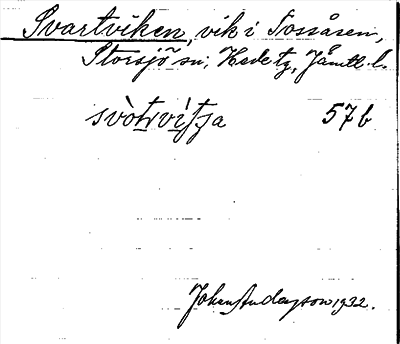 Svartviken, vik i Tossåsen,
Storsjö sn, Hede tg, Jämtl. l.
svòtvìtja 57 b
Johan Anderson 1932.